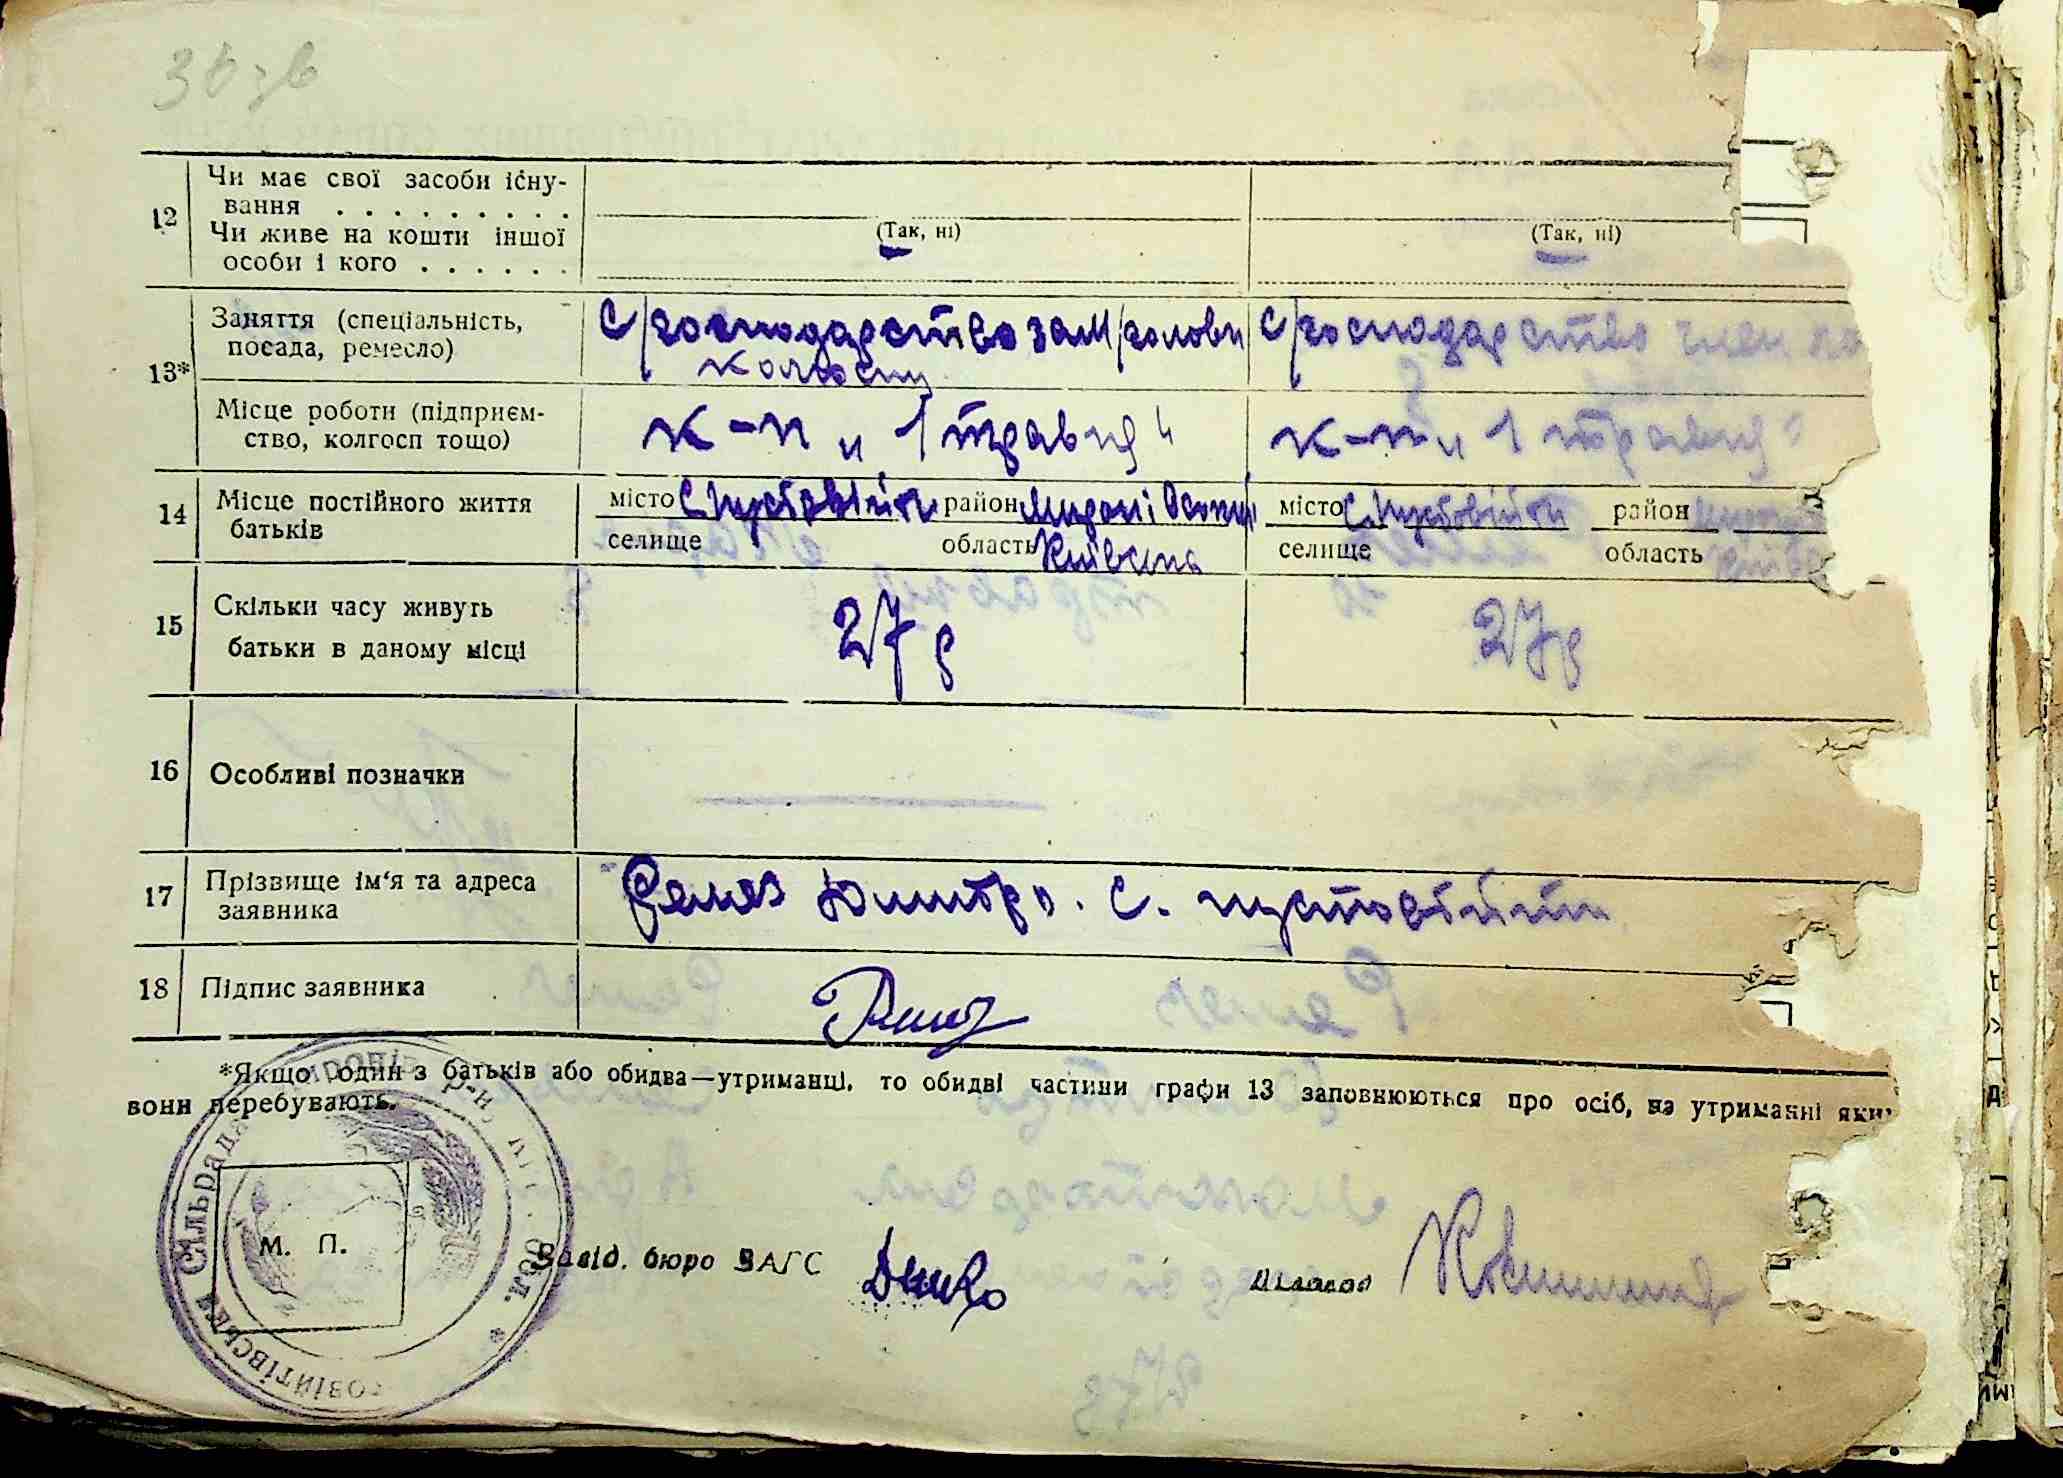 12
Чи має свої засоби існу-
вання . . . . . . . . .
Чи живе на кошти іншої
особи і кого . . . . . .
(Так, ні)
(Так, ні)
13*
Заняття (спеціальність,
посада, ремесло)
с/господарство зам/голови
колгоспу
с/господарство член
Місце роботи (підприєм-
ство, колгосп тощо)
к-п „ 1 травня "
к-п „ 1 травня "
14
Місце постійного життя
батьків
місто с. Пустовійти район
селище область Київська
місто с. Пустовійти район
селище область
15
Скільки часу живуть
батьки в даному місці
27 р
27 р
16
Особливі позначки
17
Прізвище ім'я та адреса
заявника
Ремез Дмитро. с. Пустовійти
18
Підпис заявника
*Якщо один з батьків або обидва—утриманці, то обидві частини графи 13 заповнюються про осіб, на утриманні яких
вони перебувають.
М. П.
Завід. бюро ЗАГС
Діловод